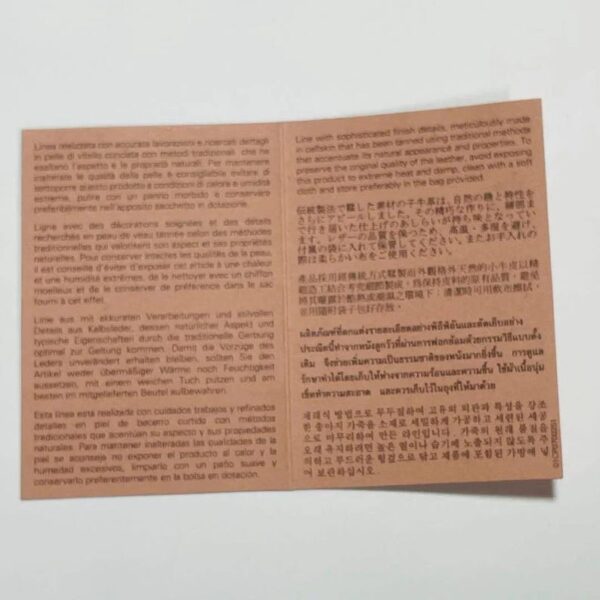 Linea realizzata con accurate lavorazioni e ricercati dettagli
in pelle di vitello conciata con metodi tradizionali che ne
esaltano l'aspetto e le proprietà naturali. Per mantenere
inalterate le qualità della pelle è consigliabile evitare di
sottoporre questo prodotto a condizioni di calore e umidità
estreme, pulire con un panno morbido e conservare
preferibilmente nell'apposito sacchetto in dotazione.
Ligne avec des décorations soignées et des détails
recherchés en peau de veau tannée selon des méthodes
traditionnelles qui valorisent son aspect et ses propriétés
naturelles. Pour conserver intactes les qualités de la peau,
il est conseillé d'éviter d'exposer cet article à une chaleur
et une humidité extrêmes, de le nettoyer avec un chiffon
moelleux et de le conserver de préférence dans le sac
fourni à cet effet.
Linie aus mit akkuraten Verarbeitungen und stilvollen
Details aus Kalbsleder, dessen natürlicher Aspekt und
typische Eigenschaften durch die traditionelle Gerbung
optimal zur Geltung kommen. Damit die Vorzüge des
Leders unverändert erhalten bleiben, sollten Sie den
Artikel weder übermäßiger Wärme noch Feuchtigkeit
aussetzen, mit einem weichen Tuch putzen und am
besten im mitgelieferten Beutel aufbewahren.
Esta línea está realizada con cuidados trabajos y refinados
detalles en piel de becerro curtido con métodos
tradicionales que acentúan su aspecto y sus propiedades
naturales. Para mantener inalteradas las cualidades de la
piel se aconseja no exponer el producto al calor y la
humedad excesivos, limpiarlo con un paño suave y
conservarlo preferentemente en la bolsa en dotación.
Line with sophisticated finish details, meticulously made
in calfskin that has been tanned using traditional methods
that accentuate its natural appearance and properties. To
preserve the original quality of the leather, avoid exposing
this product to extreme heat and damp, clean with a soft
cloth and store preferably in the bag provided.
伝統製法で鞣した素材の子牛革は、自然の趣と特性を
さらにアピールしました。その精巧な作りに、細部ま
で行き届いた仕上げのあしらいが持ち味となってい
ます。レザーの品質を保つため、高温・多湿を避け、
付属の袋に入れて保管してください。またお手入れの
際は柔らかい布をご使用ください。
產品採用經傳統方式鞣製而外觀格外天然的小牛皮以精
緻造工結合考究細節製成。為保持皮料的原有品質，避免
將其曝露於酷熱或潮濕之環境下；清潔時可用軟布擦拭，
並用隨附袋子包好存放。
ผลิตภัณฑ์ซึ่งตกแต่งรายละเอียดอย่างพิถีพิถันและตัดเย็บอย่าง
ประณีตนี้ทำจากหนังลูกวัวที่ผ่านการฟอกย้อมด้วยกรรมวิธีแบบดั้ง
เดิม จึงช่วยเพิ่มความเป็นธรรมชาติของหนังมากยิ่งขึ้น การดูแล
รักษาทำได้โดยเก็บให้ห่างจากความร้อนและความชื้น ใช้ผ้าเนื้อนุ่ม
เช็ดทำความสะอาด และควรเก็บไว้ในถุงที่ให้มาด้วย
재래식 방법으로 무두질하여 고유의 외관과 특성을 강조
한 송아지 가죽을 소재로 세밀하게 가공하고 세련된 세공
으로 마무리하여 만든 라인입니다. 가죽의 원래 품질을
오래 유지하려면 높은 열이나 습기에 노출되지 않도록 주
의하고 부드러운 헝겊으로 닦고 제품에 포함된 가방에 넣
어 보관하십시오.